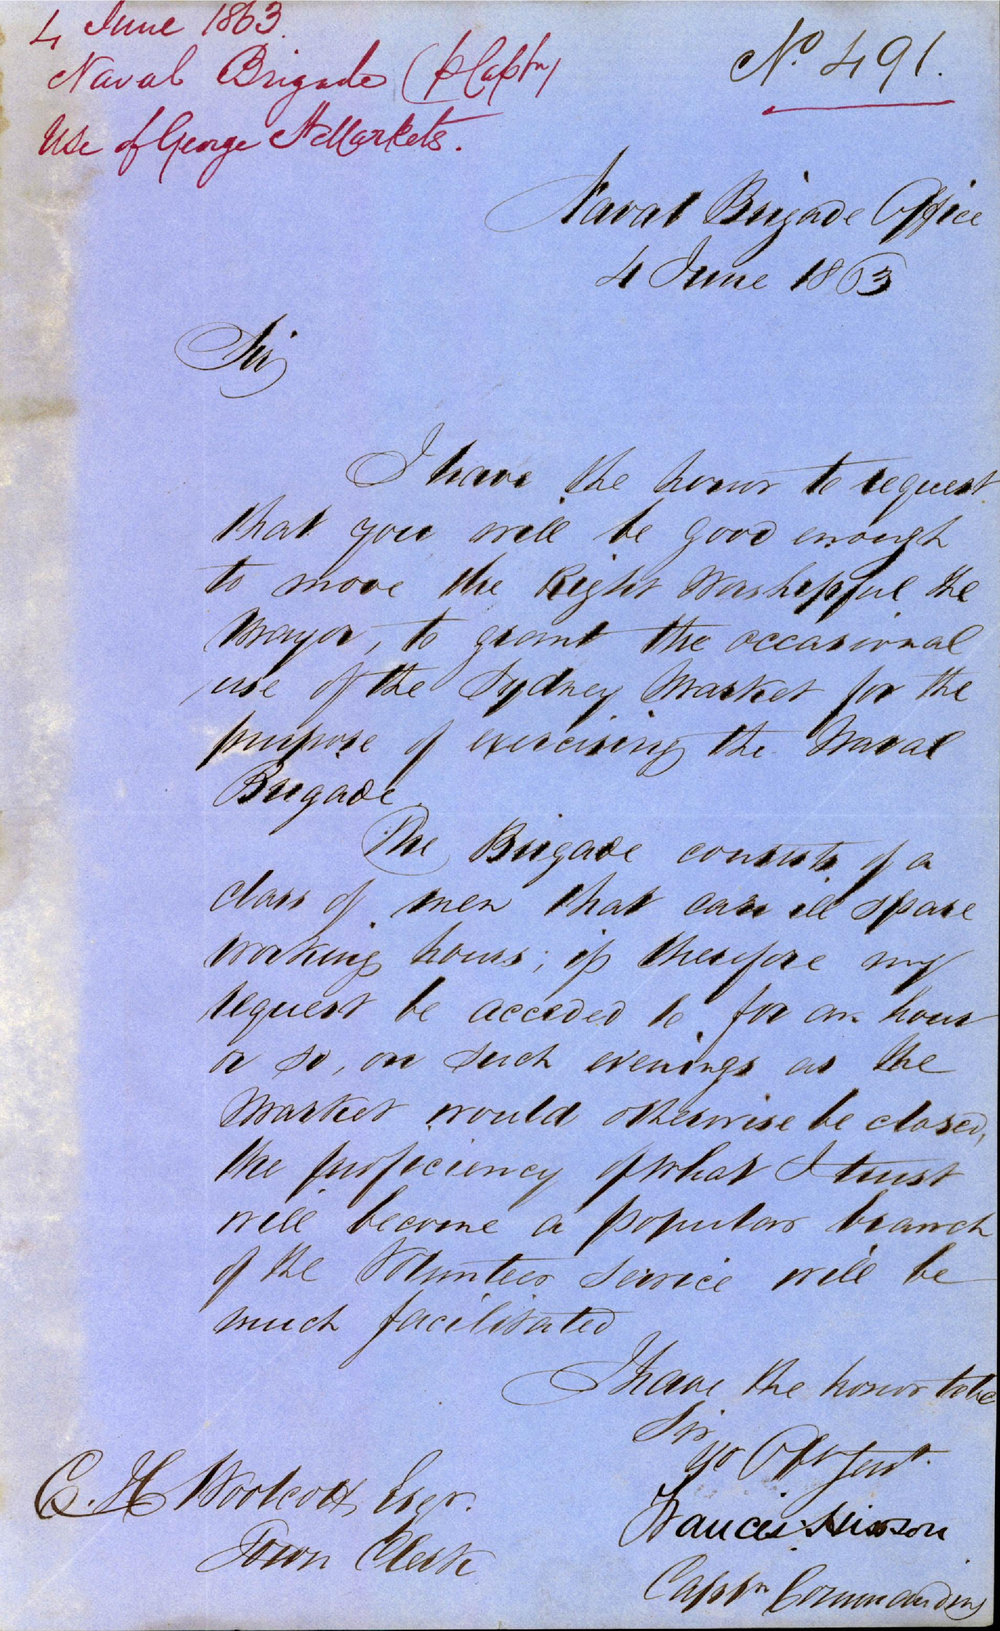 4 June 1863.
Naval Brigade (p Captn)
Use of George St Markets.
No. 491.
Naval Brigade Office
4 June 1863
Sir
I have the honor to request
that you will be good enough
to move the Right Worshipful the
Mayor, to grant the occasional
use of the Sydney Market for the
purpose of exercising the Naval
Brigade
The Brigade consists of a
class of men that can ill spare
working hours; if therefore my
request be acceded to for an hour
or so, on such evenings as the
Market would otherwise be closed,
the proficiency of what I trust
will become a popular branch
of the Volunteer Service will be
much facilitated
I have the honor to be
Sir
yr Obt Servt.
Francis Hixson
Captn Commanding
C. H. Woolcott Esqr.
Town Clerk